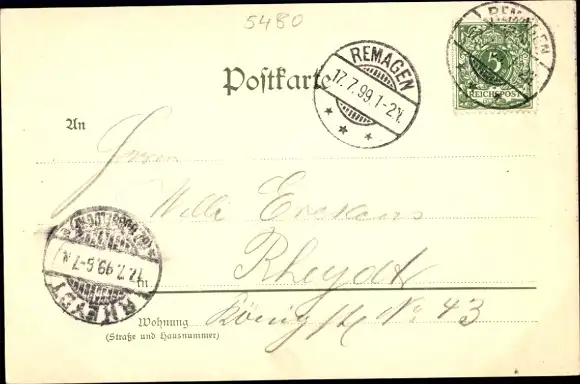 5480
REMAGEN
Postkarte
REMAGEN
17.7.99.1-2N.
5
REICHSPOST
An
Herrn
Willi
Rheydt
in
RHEYDT
17.7.99.6-7N.
Wohnung
Königstr No. 43
(Straße und Hausnummer)